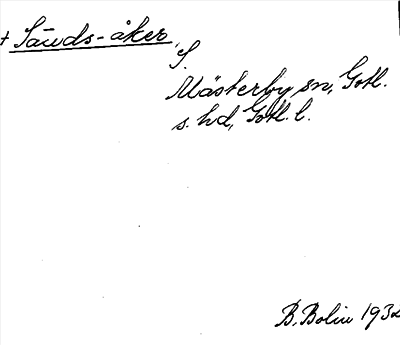 + Säuds-åker, S.
Mästerby sn, Gotl.
s. hd, Gotl. l.
B. Bolin 193